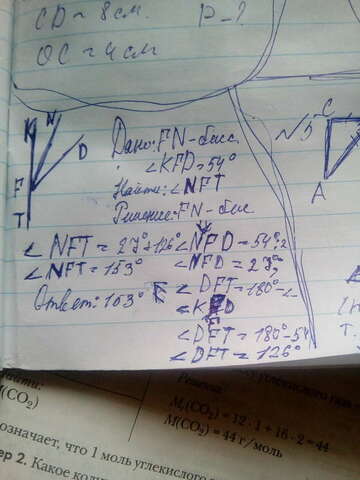 CD = 8 см. P - ?
OC = 4 см
K N D
F
T
Дано: FN - бисс
∠KFD = 54°
Найти: ∠NFT
Решение: FN - бис
∠NFD = 54°:2
∠NFD = 27°,
∠DFT = 180° -
∠KFD
∠DFT = 180° - 54
∠DFT = 126°
∠NFT = 27° + 126°
∠NFT = 153°
Ответ: 153°
№5
C
A
M(CO₂)
Решение:
Mᵣ(CO₂) = 12 · 1 + 16 · 2 = 44
M(CO₂) = 44 г/моль
означает, что 1 моль углекислого
ер 2. Какое